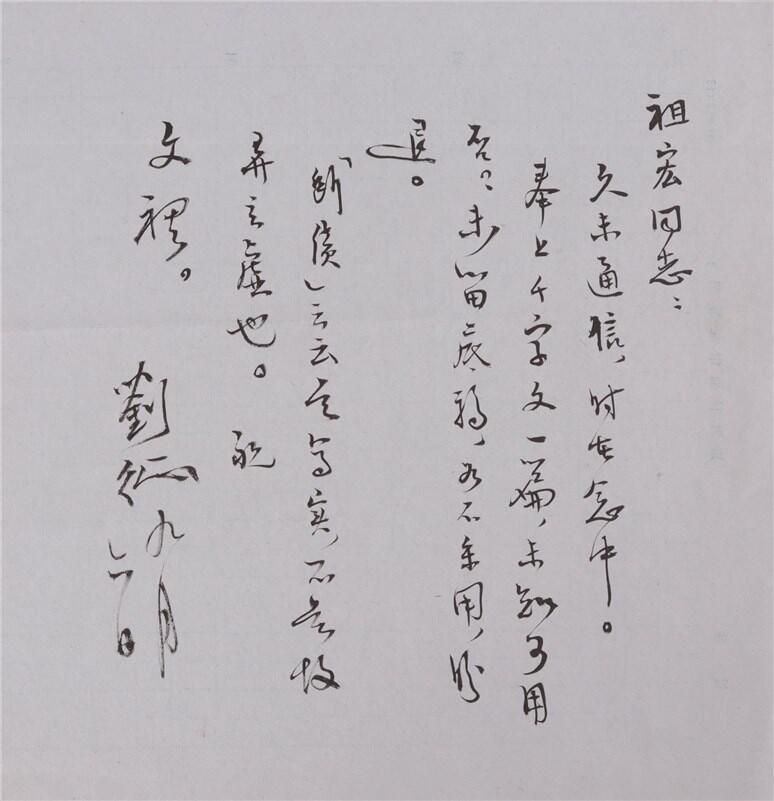 祖宏同志：
久未通信，时在念中。
奉上千字文一篇，未知可用
否？未留底稿，若不采用，盼
退。
「断债」云云是写实，不是故
弄玄虚也。祝
文祺。
劉征 九月
日